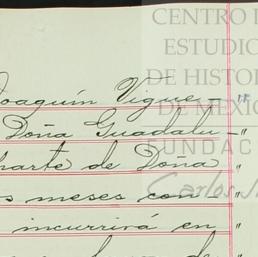 CENTRO
ESTUDIO
DE HISTOR
DE MÉXICO
FUNDAC
Carlos
Joaquín Vigue-"
Doña Guadalu-"
parte de Doña "
s meses con-"
incurrirá en "